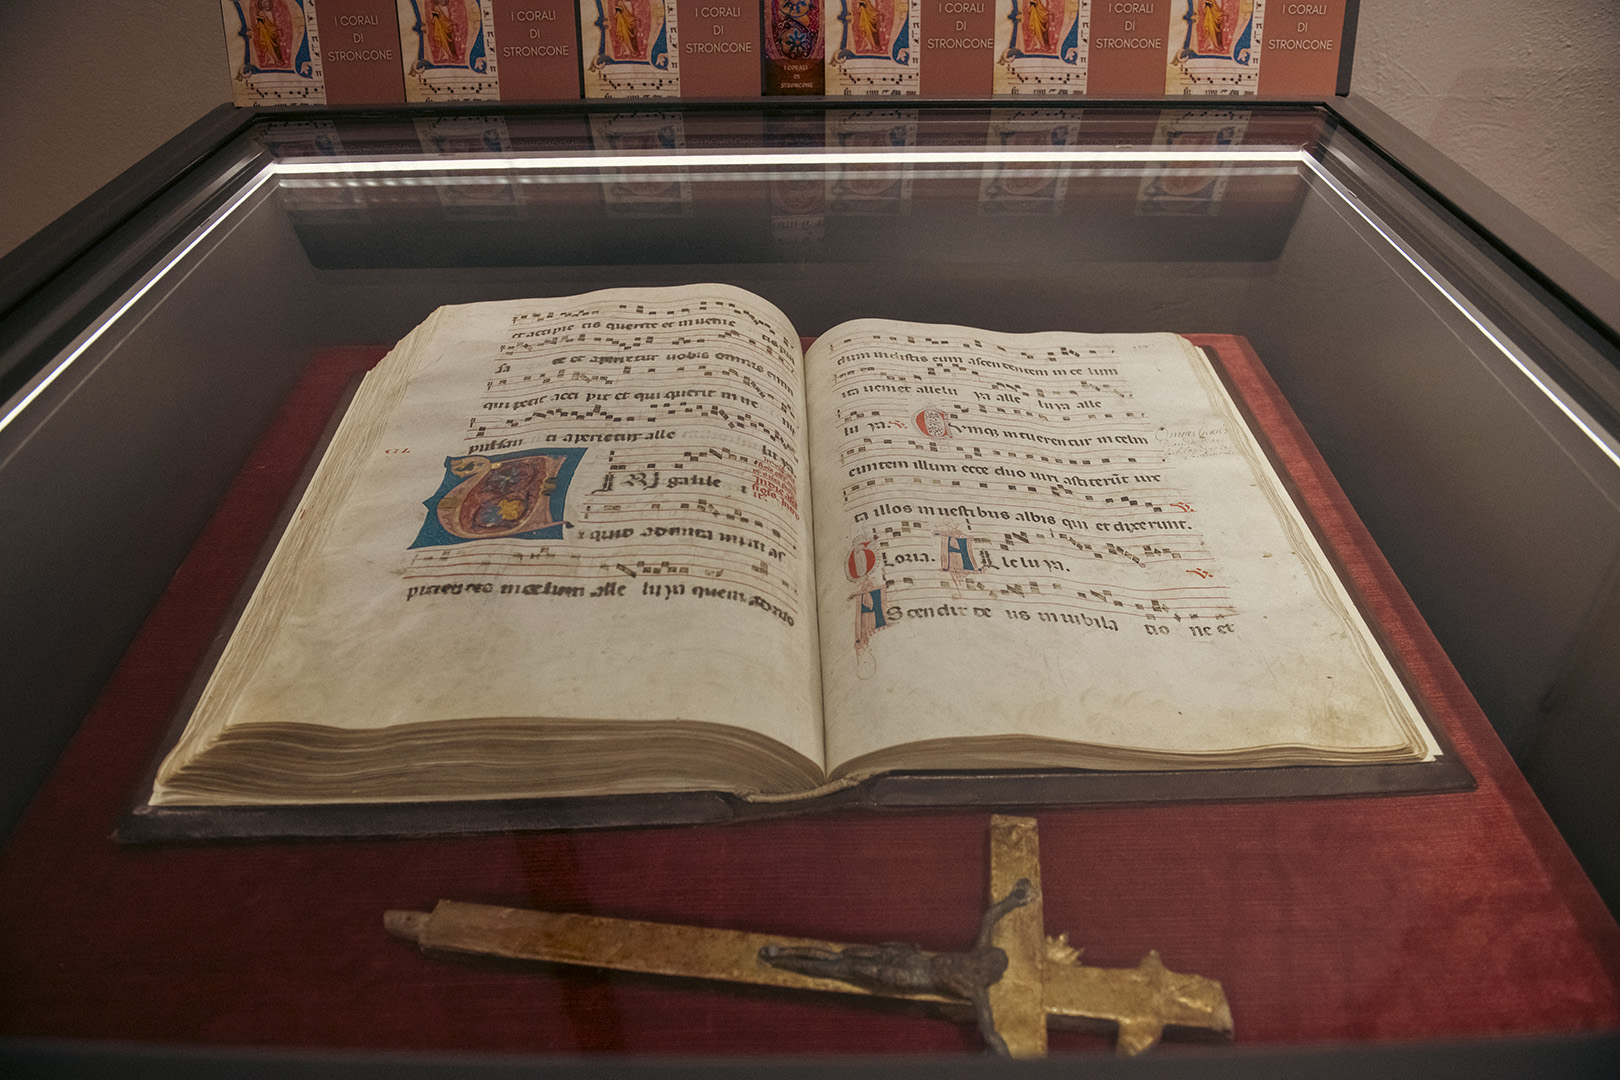 I CORALI
DI
STRONCONE
I CORALI
DI
STRONCONE
I CORALI
DI
STRONCONE
I CORALI
DI
STRONCONE
I CORALI
DI
STRONCONE
I CORALI
DI
STRONCONE
I CORALI
DI
STRONCONE
et accipie tis querite et in venie
tis pul
te et aperietur uobis omnis enim
qui petit acci pit et qui querit in ue
nit
pulsan ti aperietur alle
lu ya.
VIRI galilei
quid admira mini as
picientes in celum alle lu ya quem admo
dum uidistis eum ascendentem in ce lum
ita ueniet allelu ya alle lu ya alle
lu ya. Cumque intuerentur in celum
euntem illum ecce duo uiri astiterūt iux
ta illos in uestibus albis qui et dixerunt.
GLoria. ALleluya.
AScendit de us in iubila tio ne et